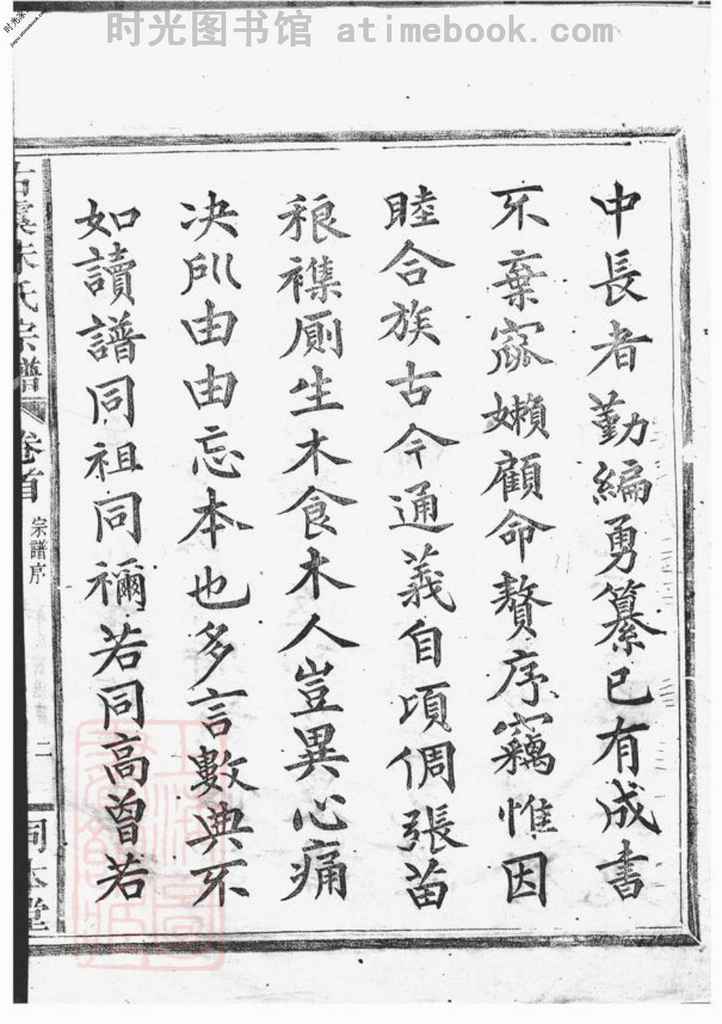 时光图书馆 atimebook.com
中長者勤編勇纂已有成書
不棄窳嬾顧命贅序竊惟因
睦合族古今通義自頃倜張苗
稂襍厠生木食木人豈異心痛
决所由由忘本也多言數典不
如讀譜同祖同禰若同高曾若
朱氏宗譜
卷首
宗譜序
二
同本堂